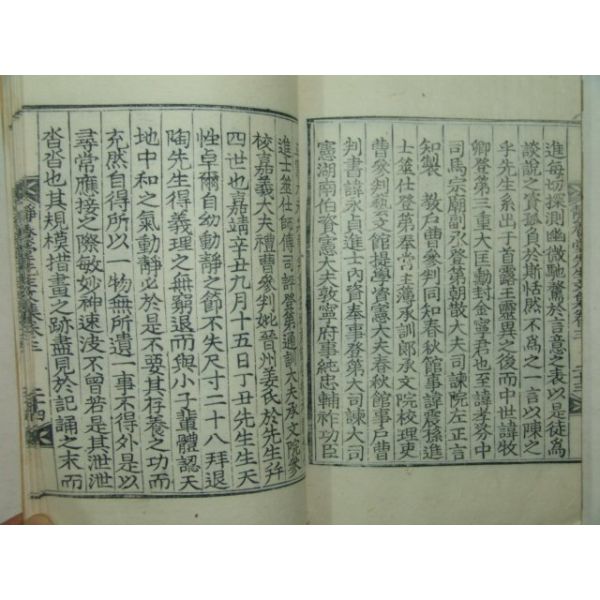 進每切探測幽微馳騖於言意之表以是徒為
談說之資孤負於斯恬然不為之一言以陳之
乎先生系出于首露王靈異之後而中世諱牧
卿登第三重大匡勳封金寧君也至諱孝芬中
司馬宗廟副丞登第朝散大夫司諫院左正言
知製教戶曹參判同知春秋館事諱震孫進
士筮仕登第奉常主簿承訓郎承文院校理吏
曹參判藝文館提學資憲大夫春秋館事戶曹
判書諱永貞進士內資奉事登第大司諫大司
憲湖南伯資憲大夫敦寧府事純忠輔祚功臣
進士筮仕師傅司評登第通訓大夫承文院參
校嘉義大夫禮曹參判妣晉州姜氏於先生為
四世也嘉靖辛丑九月十五日丁丑先生生天
性卓爾自幼動靜之節不失尺寸二十八拜退
陶先生得義理之無窮退而與小子輩體認天
地中和之氣動靜必於是不要其存養之功而
充然自得所以一物無所遺一事不得外是以
尋常應接之際敏妙神速波不曾若是其泄泄
沓沓也其規模措畫之跡盡見於記誦之末而